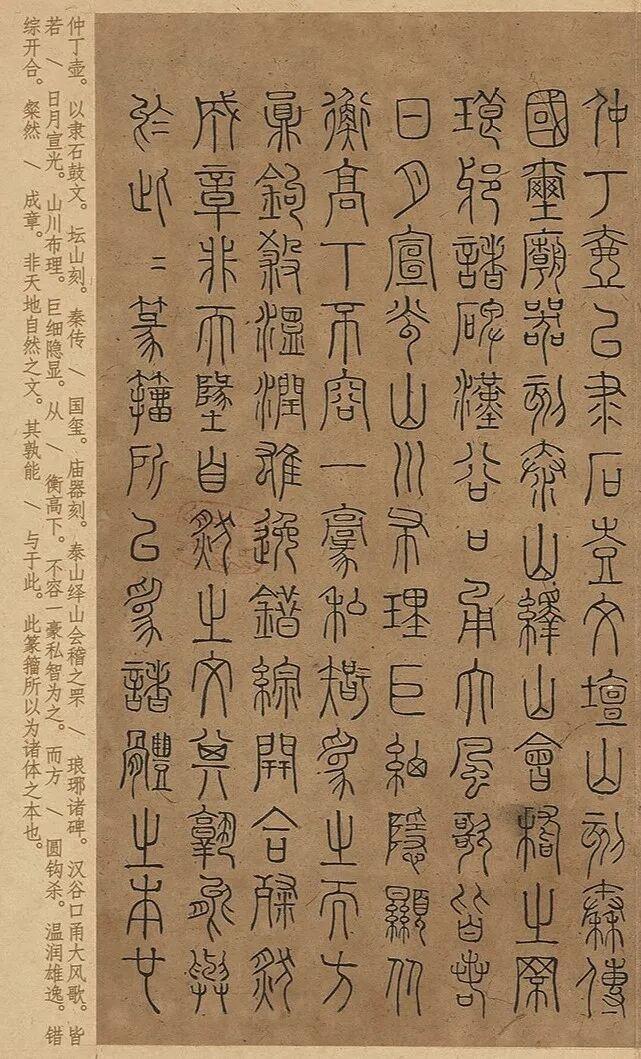 仲丁壺以隶石鼓文壇山刻秦傳
國璽廟器刻泰山繹山會稽之罘
琅邪諸碑漢谷口甬大風歌皆若
日月宣光山川布理巨細隱顯从
衡高下不容一豪私智為之而方
圓鉤殺溫潤雄逸錯綜開合粲然
成章非天地自然之文其孰能與
於此二篆籀所以為諸體之本也
仲丁壶。以隶石鼓文。坛山刻。秦传 / 国玺。庙器刻。泰山绎山会稽之罘 / 琅琊诸碑。汉谷口甬大风歌。皆
若 / 日月宣光。山川布理。巨细隐显。从 / 衡高下。不容一豪私智为之。而方 / 圆钩杀。温润雄逸。错
综开合。粲然 / 成章。非天地自然之文。其孰能 / 与于此。此篆籀所以为诸体之本也。